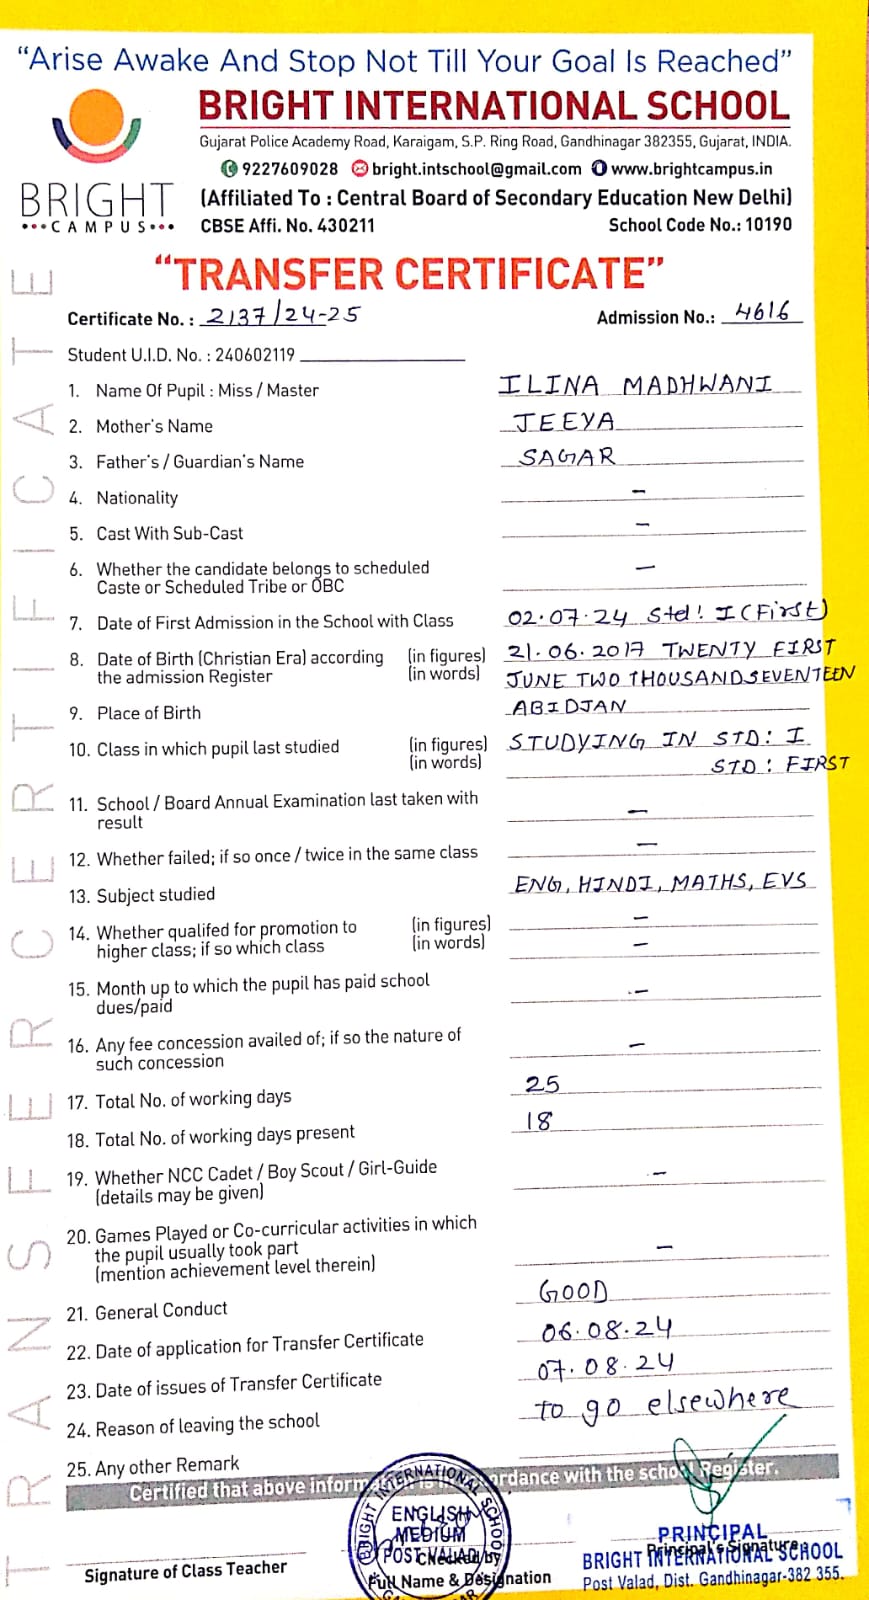 “Arise Awake And Stop Not Till Your Goal Is Reached”
BRIGHT INTERNATIONAL SCHOOL
Gujarat Police Academy Road, Karaigam, S.P. Ring Road, Gandhinagar 382355, Gujarat, INDIA.
9227609028 bright.intschool@gmail.com www.brightcampus.in
BRIGHT
CAMPUS
(Affiliated To : Central Board of Secondary Education New Delhi)
CBSE Affi. No. 430211 School Code No.: 10190
TRANSFER CERTIFICATE
“TRANSFER CERTIFICATE”
Certificate No. : 2137/24-25 Admission No.: 4616
Student U.I.D. No. : 240602119
1. Name Of Pupil : Miss / Master ILINA MADHWANI
2. Mother's Name JEEYA
3. Father's / Guardian's Name SAGAR
4. Nationality –
5. Cast With Sub-Cast –
6. Whether the candidate belongs to scheduled –
Caste or Scheduled Tribe or OBC
7. Date of First Admission in the School with Class 02.07.24 Std! I (First)
8. Date of Birth (Christian Era) according (in figures) 21.06.2017 TWENTY FIRST
the admission Register (in words) JUNE TWO THOUSAND SEVENTEEN
9. Place of Birth ABIDJAN
10. Class in which pupil last studied (in figures) STUDYING IN STD: I
(in words) STD : FIRST
11. School / Board Annual Examination last taken with –
result
12. Whether failed; if so once / twice in the same class –
13. Subject studied ENG, HINDI, MATHS, EVS
14. Whether qualifed for promotion to (in figures) –
higher class; if so which class (in words) –
15. Month up to which the pupil has paid school –
dues/paid
16. Any fee concession availed of; if so the nature of –
such concession
17. Total No. of working days 25
18. Total No. of working days present 18
19. Whether NCC Cadet / Boy Scout / Girl-Guide –
(details may be given)
20. Games Played or Co-curricular activities in which
the pupil usually took part –
(mention achievement level therein)
21. General Conduct GOOD
22. Date of application for Transfer Certificate 06.08.24
23. Date of issues of Transfer Certificate 07.08.24
24. Reason of leaving the school to go elsewhere
25. Any other Remark
Certified that above is in accordance with the school Register.
BRIGHT INTERNATIONAL SCHOOL
ENGLISH
MEDIUM
POST VALAD
Signature of Class Teacher
Checked by
Full Name & Designation
PRINCIPAL
Principal's Signature
BRIGHT INTERNATIONAL SCHOOL
Post Valad, Dist. Gandhinagar-382 355.